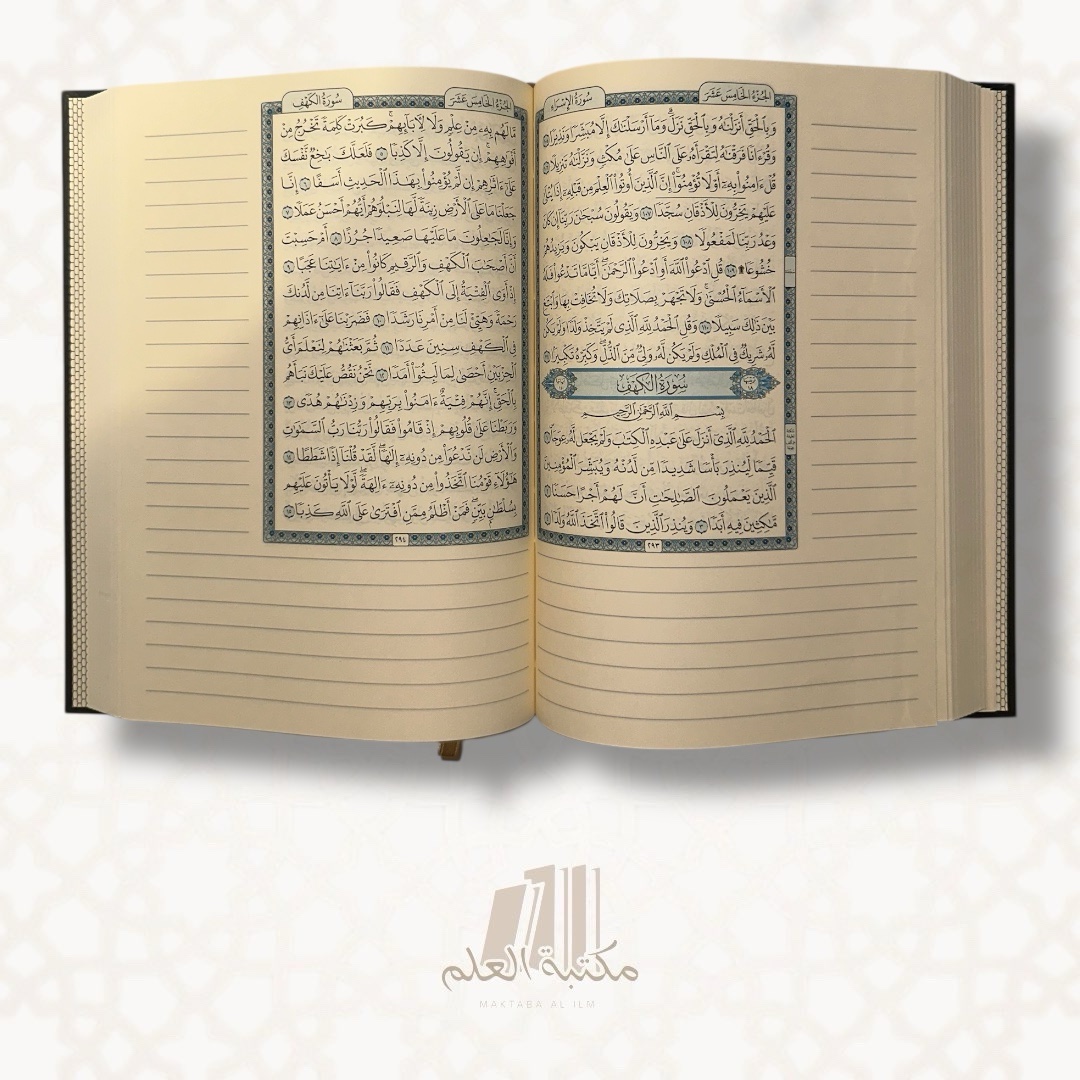 الجزء الخامس عشر
سورة الإسراء
وَبِٱلْحَقِّ أَنزَلْنَٰهُ وَبِٱلْحَقِّ نَزَلَ وَمَآ أَرْسَلْنَٰكَ إِلَّا مُبَشِّرًا وَنَذِيرًا ١٠٥
وَقُرْءَانًا فَرَقْنَٰهُ لِتَقْرَأَهُۥ عَلَى ٱلنَّاسِ عَلَىٰ مُكْثٍ وَنَزَّلْنَٰهُ تَنزِيلًا ١٠٦
قُلْ ءَامِنُوا۟ بِهِۦٓ أَوْ لَا تُؤْمِنُوٓا۟ إِنَّ ٱلَّذِينَ أُوتُوا۟ ٱلْعِلْمَ مِن قَبْلِهِۦٓ إِذَا يُتْلَىٰ
عَلَيْهِمْ يَخِرُّونَ لِلْأَذْقَانِ سُجَّدًا ١٠٧ وَيَقُولُونَ سُبْحَٰنَ رَبِّنَآ إِن كَانَ
وَعْدُ رَبِّنَا لَمَفْعُولًا ١٠٨ وَيَخِرُّونَ لِلْأَذْقَانِ يَبْكُونَ وَيَزِيدُهُمْ
خُشُوعًا ۩ ١٠٩ قُلِ ٱدْعُوا۟ ٱللَّهَ أَوِ ٱدْعُوا۟ ٱلرَّحْمَٰنَ أَيًّا مَّا تَدْعُوا۟ فَلَهُ
ٱلْأَسْمَآءُ ٱلْحُسْنَىٰ وَلَا تَجْهَرْ بِصَلَاتِكَ وَلَا تُخَافِتْ بِهَا وَٱبْتَغِ
بَيْنَ ذَٰلِكَ سَبِيلًا ١١٠ وَقُلِ ٱلْحَمْدُ لِلَّهِ ٱلَّذِى لَمْ يَتَّخِذْ وَلَدًا وَلَمْ يَكُن
لَّهُۥ شَرِيكٌ فِى ٱلْمُلْكِ وَلَمْ يَكُن لَّهُۥ وَلِىٌّ مِّنَ ٱلذُّلِّ وَكَبِّرْهُ تَكْبِيرًا ١١١
سُورَةُ الكَهْفِ
بِسْمِ ٱللَّهِ ٱلرَّحْمَٰنِ ٱلرَّحِيمِ
ٱلْحَمْدُ لِلَّهِ ٱلَّذِىٓ أَنزَلَ عَلَىٰ عَبْدِهِ ٱلْكِتَٰبَ وَلَمْ يَجْعَل لَّهُۥ عِوَجَا ١
قَيِّمًا لِّيُنذِرَ بَأْسًا شَدِيدًا مِّن لَّدُنْهُ وَيُبَشِّرَ ٱلْمُؤْمِنِينَ
ٱلَّذِينَ يَعْمَلُونَ ٱلصَّٰلِحَٰتِ أَنَّ لَهُمْ أَجْرًا حَسَنًا ٢
مَّٰكِثِينَ فِيهِ أَبَدًا ٣ وَيُنذِرَ ٱلَّذِينَ قَالُوا۟ ٱتَّخَذَ ٱللَّهُ وَلَدًا ٤
٢٩٣
الجزء الخامس عشر
سورة الكهف
مَّا لَهُم بِهِۦ مِنْ عِلْمٍ وَلَا لِءَابَآئِهِمْ كَبُرَتْ كَلِمَةً تَخْرُجُ مِنْ
أَفْوَٰهِهِمْ إِن يَقُولُونَ إِلَّا كَذِبًا ٥ فَلَعَلَّكَ بَٰخِعٌ نَّفْسَكَ
عَلَىٰٓ ءَاثَٰرِهِمْ إِن لَّمْ يُؤْمِنُوا۟ بِهَٰذَا ٱلْحَدِيثِ أَسَفًا ٦ إِنَّا
جَعَلْنَا مَا عَلَى ٱلْأَرْضِ زِينَةً لَّهَا لِنَبْلُوَهُمْ أَيُّهُمْ أَحْسَنُ عَمَلًا ٧
وَإِنَّا لَجَٰعِلُونَ مَا عَلَيْهَا صَعِيدًا جُرُزًا ٨ أَمْ حَسِبْتَ
أَنَّ أَصْحَٰبَ ٱلْكَهْفِ وَٱلرَّقِيمِ كَانُوا۟ مِنْ ءَايَٰتِنَا عَجَبًا ٩
إِذْ أَوَى ٱلْفِتْيَةُ إِلَى ٱلْكَهْفِ فَقَالُوا۟ رَبَّنَآ ءَاتِنَا مِن لَّدُنكَ
رَحْمَةً وَهَيِّئْ لَنَا مِنْ أَمْرِنَا رَشَدًا ١٠ فَضَرَبْنَا عَلَىٰٓ ءَاذَانِهِمْ
فِى ٱلْكَهْفِ سِنِينَ عَدَدًا ١١ ثُمَّ بَعَثْنَٰهُمْ لِنَعْلَمَ أَىُّ
ٱلْحِزْبَيْنِ أَحْصَىٰ لِمَا لَبِثُوٓا۟ أَمَدًا ١٢ نَّحْنُ نَقُصُّ عَلَيْكَ نَبَأَهُم
بِٱلْحَقِّ إِنَّهُمْ فِتْيَةٌ ءَامَنُوا۟ بِرَبِّهِمْ وَزِدْنَٰهُمْ هُدًى ١٣
وَرَبَطْنَا عَلَىٰ قُلُوبِهِمْ إِذْ قَامُوا۟ فَقَالُوا۟ رَبُّنَا رَبُّ ٱلسَّمَٰوَٰتِ
وَٱلْأَرْضِ لَن نَّدْعُوَا۟ مِن دُونِهِۦٓ إِلَٰهًا لَّقَدْ قُلْنَآ إِذًا شَطَطًا ١٤
هَٰٓؤُلَآءِ قَوْمُنَا ٱتَّخَذُوا۟ مِن دُونِهِۦٓ ءَالِهَةً لَّوْلَا يَأْتُونَ عَلَيْهِم
بِسُلْطَٰنٍۭ بَيِّنٍ فَمَنْ أَظْلَمُ مِمَّنِ ٱفْتَرَىٰ عَلَى ٱللَّهِ كَذِبًا ١٥
٢٩٤
مكتبة العلم
MAKTABA AL ILM